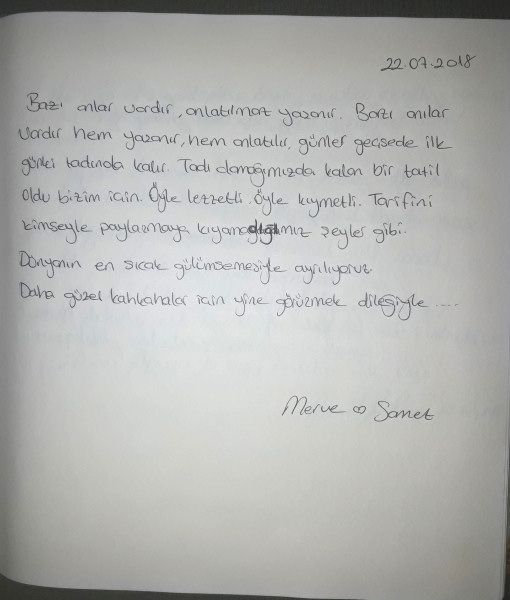 22.07.2018
Bazı anlar vardır, anlatılmaz yaşanır. Bazı anılar
vardır hem yaşanır, hem anlatılır, günler geçsede ilk
günkü tadında kalır. Tadı damağımızda kalan bir tatil
oldu bizim için. Öyle lezzetli, öyle kıymetli. Tarifini
kimseyle paylaşmaya kıyamadığımız şeyler gibi.
Dünyanın en sıcak gülümsemesiyle ayrılıyoruz.
Daha güzel kahkahalar için yine görüşmek dileğiyle ....
Merve ∞ Samet